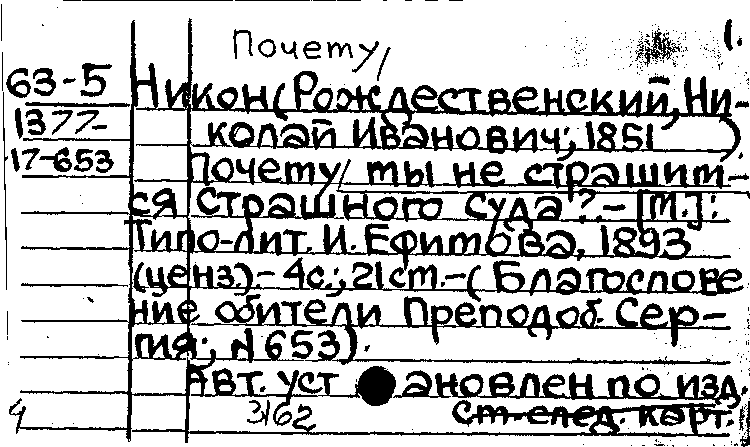 Почему/
1.
63-5 Никон (Рождественский, Ни-
1377- колай Иванович; 1851 )
17-653 Почему/ ты не страшит-
ся Страшного Суда?.-[М.]:
Типо-лит. И. Ефимова, 1893
(ценз.).- 4с.; 21см.-(Благослове
ние обители Преподоб. Сер-
гия; №653).
Авт. уст ановлен по изд.
4 3162 См. след. карт.